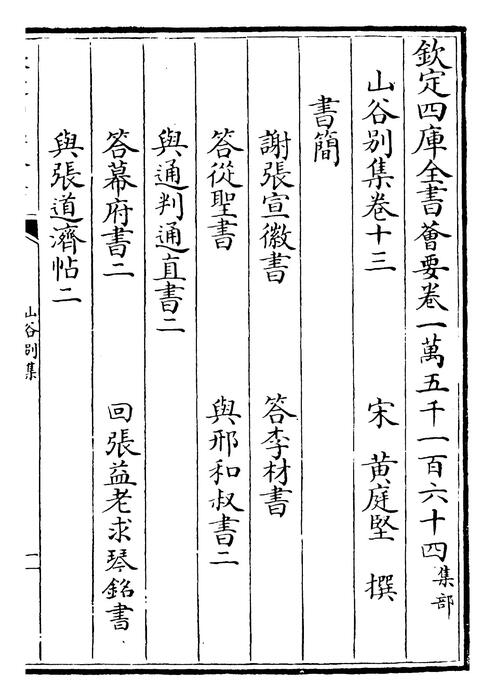 欽定四庫全書薈要卷一萬五千一百六十四集部
山谷別集卷十三　宋　黃庭堅　撰
書簡
謝張宣徽書　答李材書
答從聖書　與邢和叔書二
與通判通直書二
答幕府書二　回張益老求琴銘書
與張道濟帖二
山谷別集